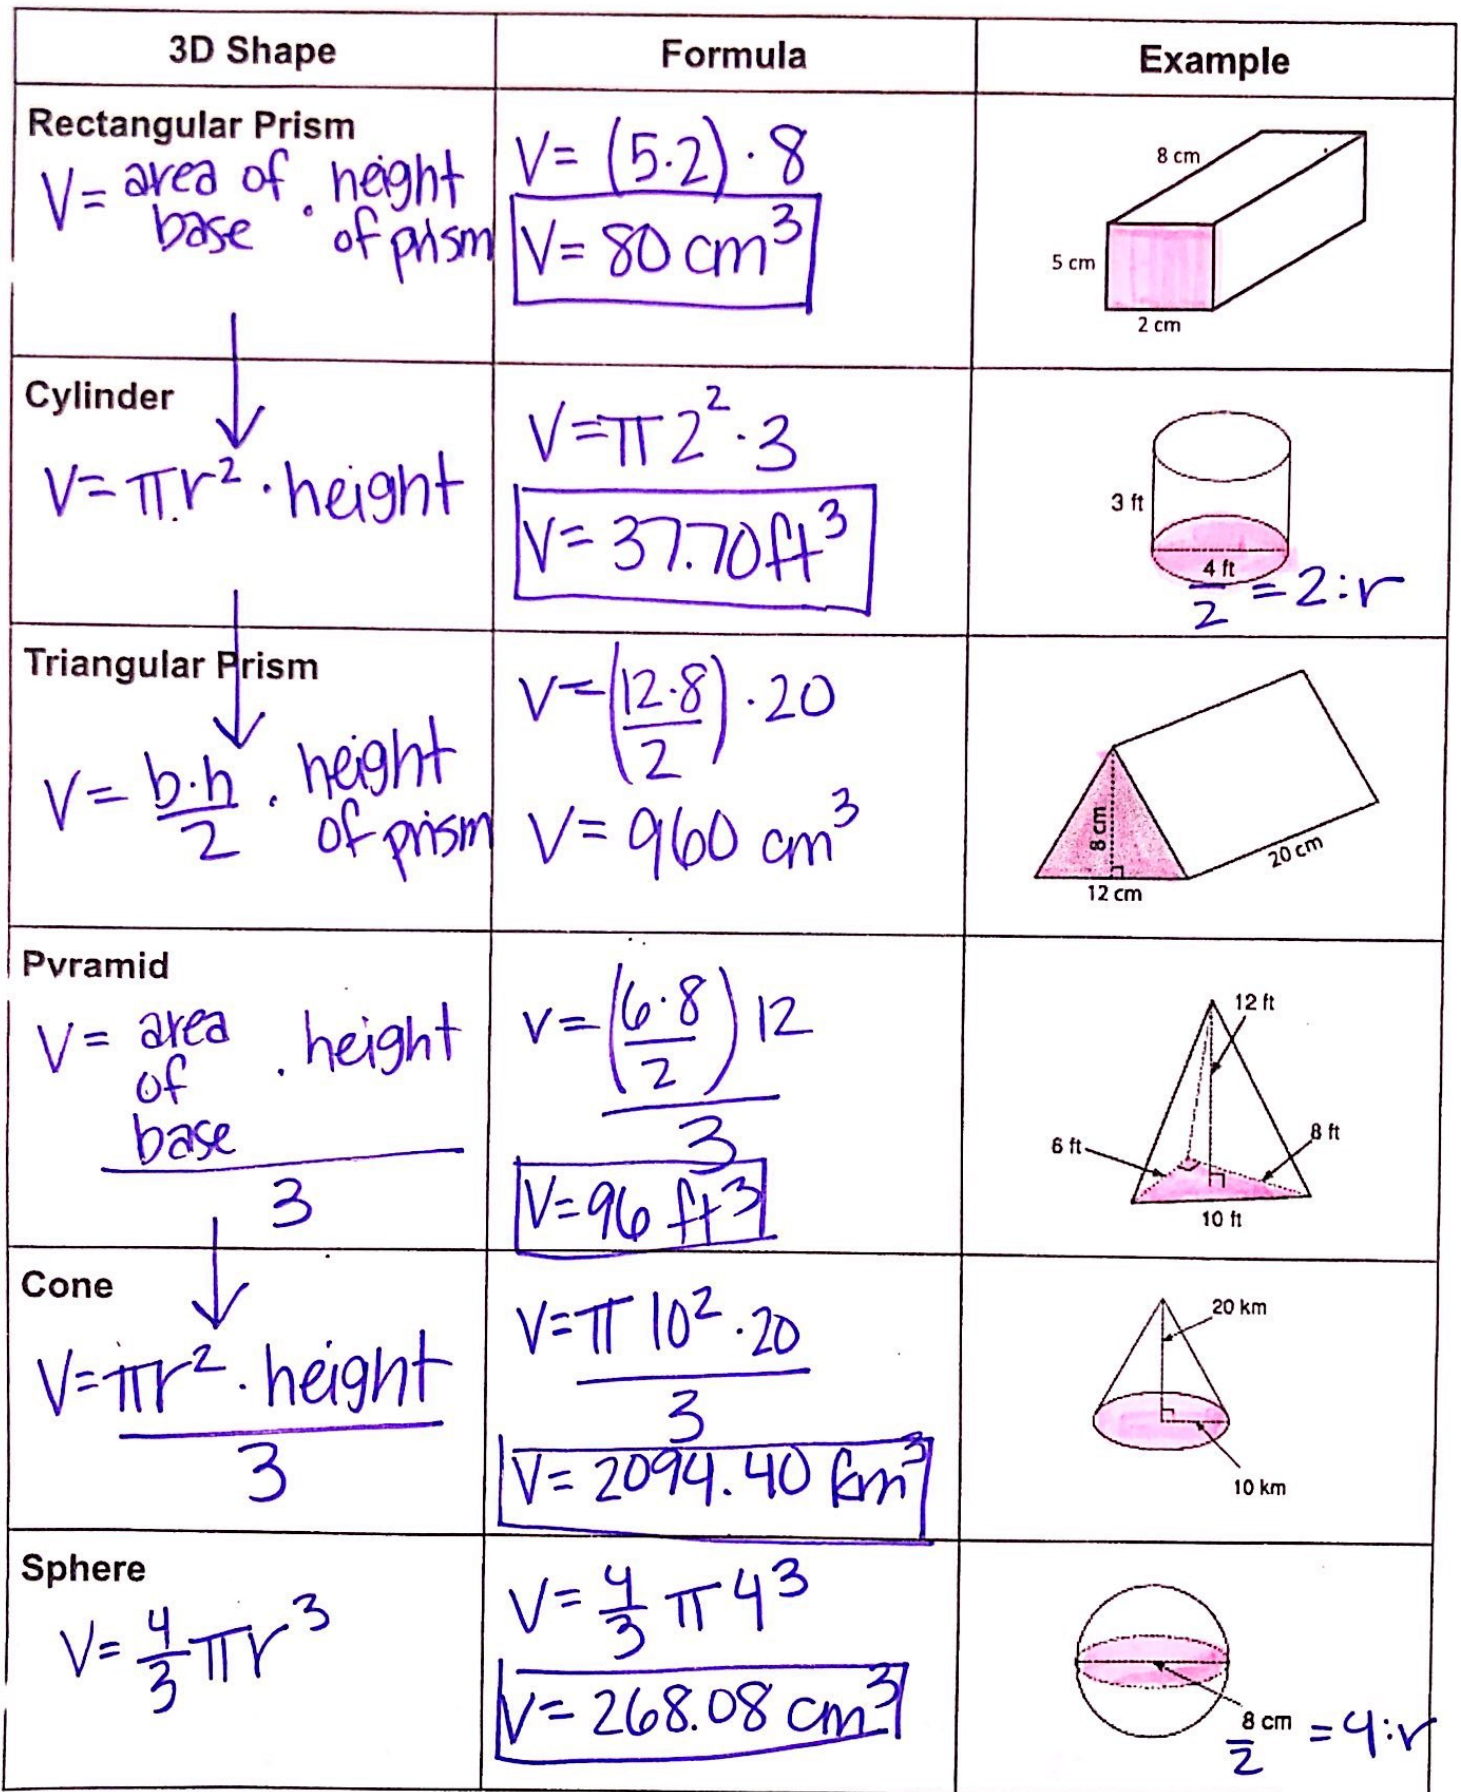 3D Shape
Formula
Example
Rectangular Prism
V = area of base · height of prism
V = (5·2) · 8
V = 80 cm³
8 cm
5 cm
2 cm
Cylinder
V = πr² · height
V = π 2² · 3
V = 37.70 ft³
3 ft
4 ft
/2 = 2 : r
Triangular Prism
V = b·h/2 · height of prism
V = (12·8/2) · 20
V = 960 cm³
8 cm
12 cm
20 cm
Pyramid
V = area of base · height
/3
V = (6·8/2) 12
/3
V = 96 ft³
12 ft
6 ft
8 ft
10 ft
Cone
V = πr² · height
/3
V = π 10² · 20
/3
V = 2094.40 km³
20 km
10 km
Sphere
V = 4/3 πr³
V = 4/3 π 4³
V = 268.08 cm³
8 cm
/2 = 4 : r